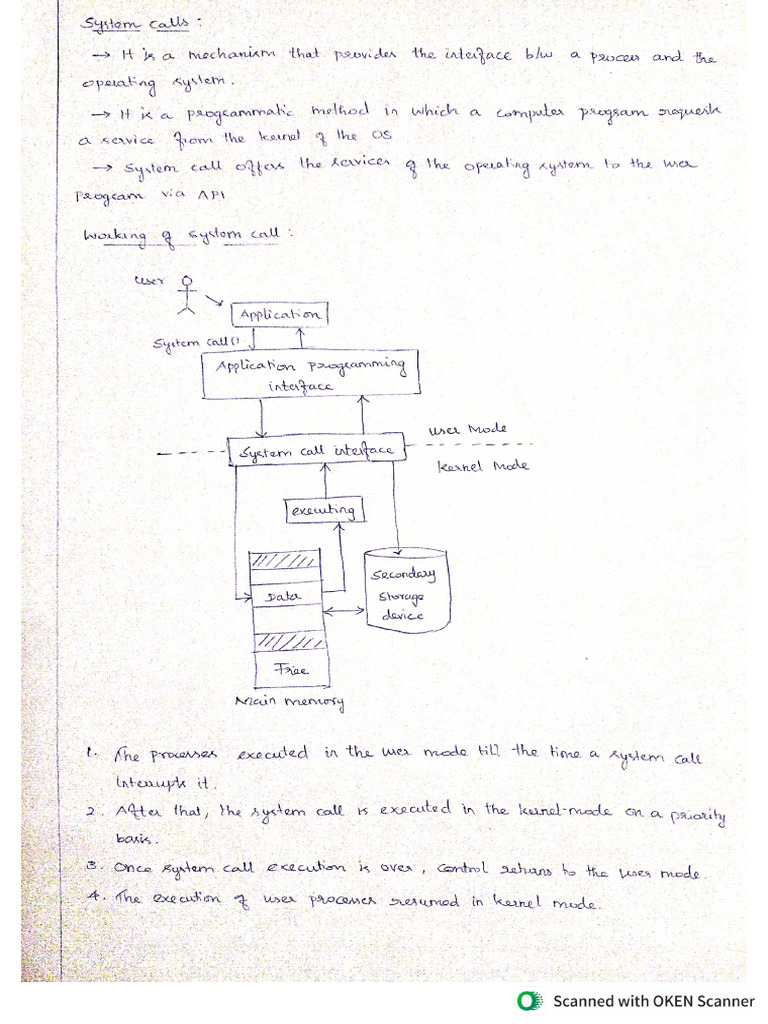 System calls :
→ It is a mechanism that provides the interface b/w a process and the
operating system.
→ It is a programmatic method in which a computer program requests
a service from the kernel of the OS
→ System call offers the services of the operating system to the user
program via API
Working of system call :
User
Application
System call()
Application programming
interface
User Mode
System call interface
Kernel Mode
executing
Secondary
Data
storage
device
Free
Main memory
1. The processes executed in the user mode till the time a system call
Interrupts it.
2. After that, the system call is executed in the kernel-mode on a priority
basis.
3. Once system call execution is over, control returns to the user mode.
4. The execution of user processes resumed in kernel mode.
Scanned with OKEN Scanner